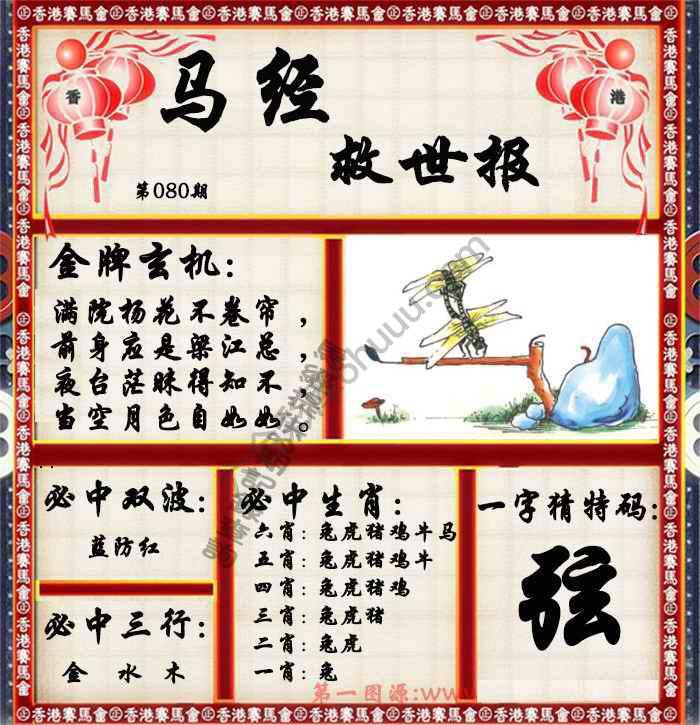 香港賽馬會
香
港
马经
救世报
第080期
金牌玄机:
满院杨花不卷帘，
前身应是梁江总，
夜台茫昧得知不，
当空月色自如如。
必中双波:
蓝防红
必中三行:
金 水 木
必中生肖:
六肖: 兔虎猪鸡牛马
五肖: 兔虎猪鸡牛
四肖: 兔虎猪鸡
三肖: 兔虎猪
二肖: 兔虎
一肖: 兔
一字猜特码:
弦
第一图源:www